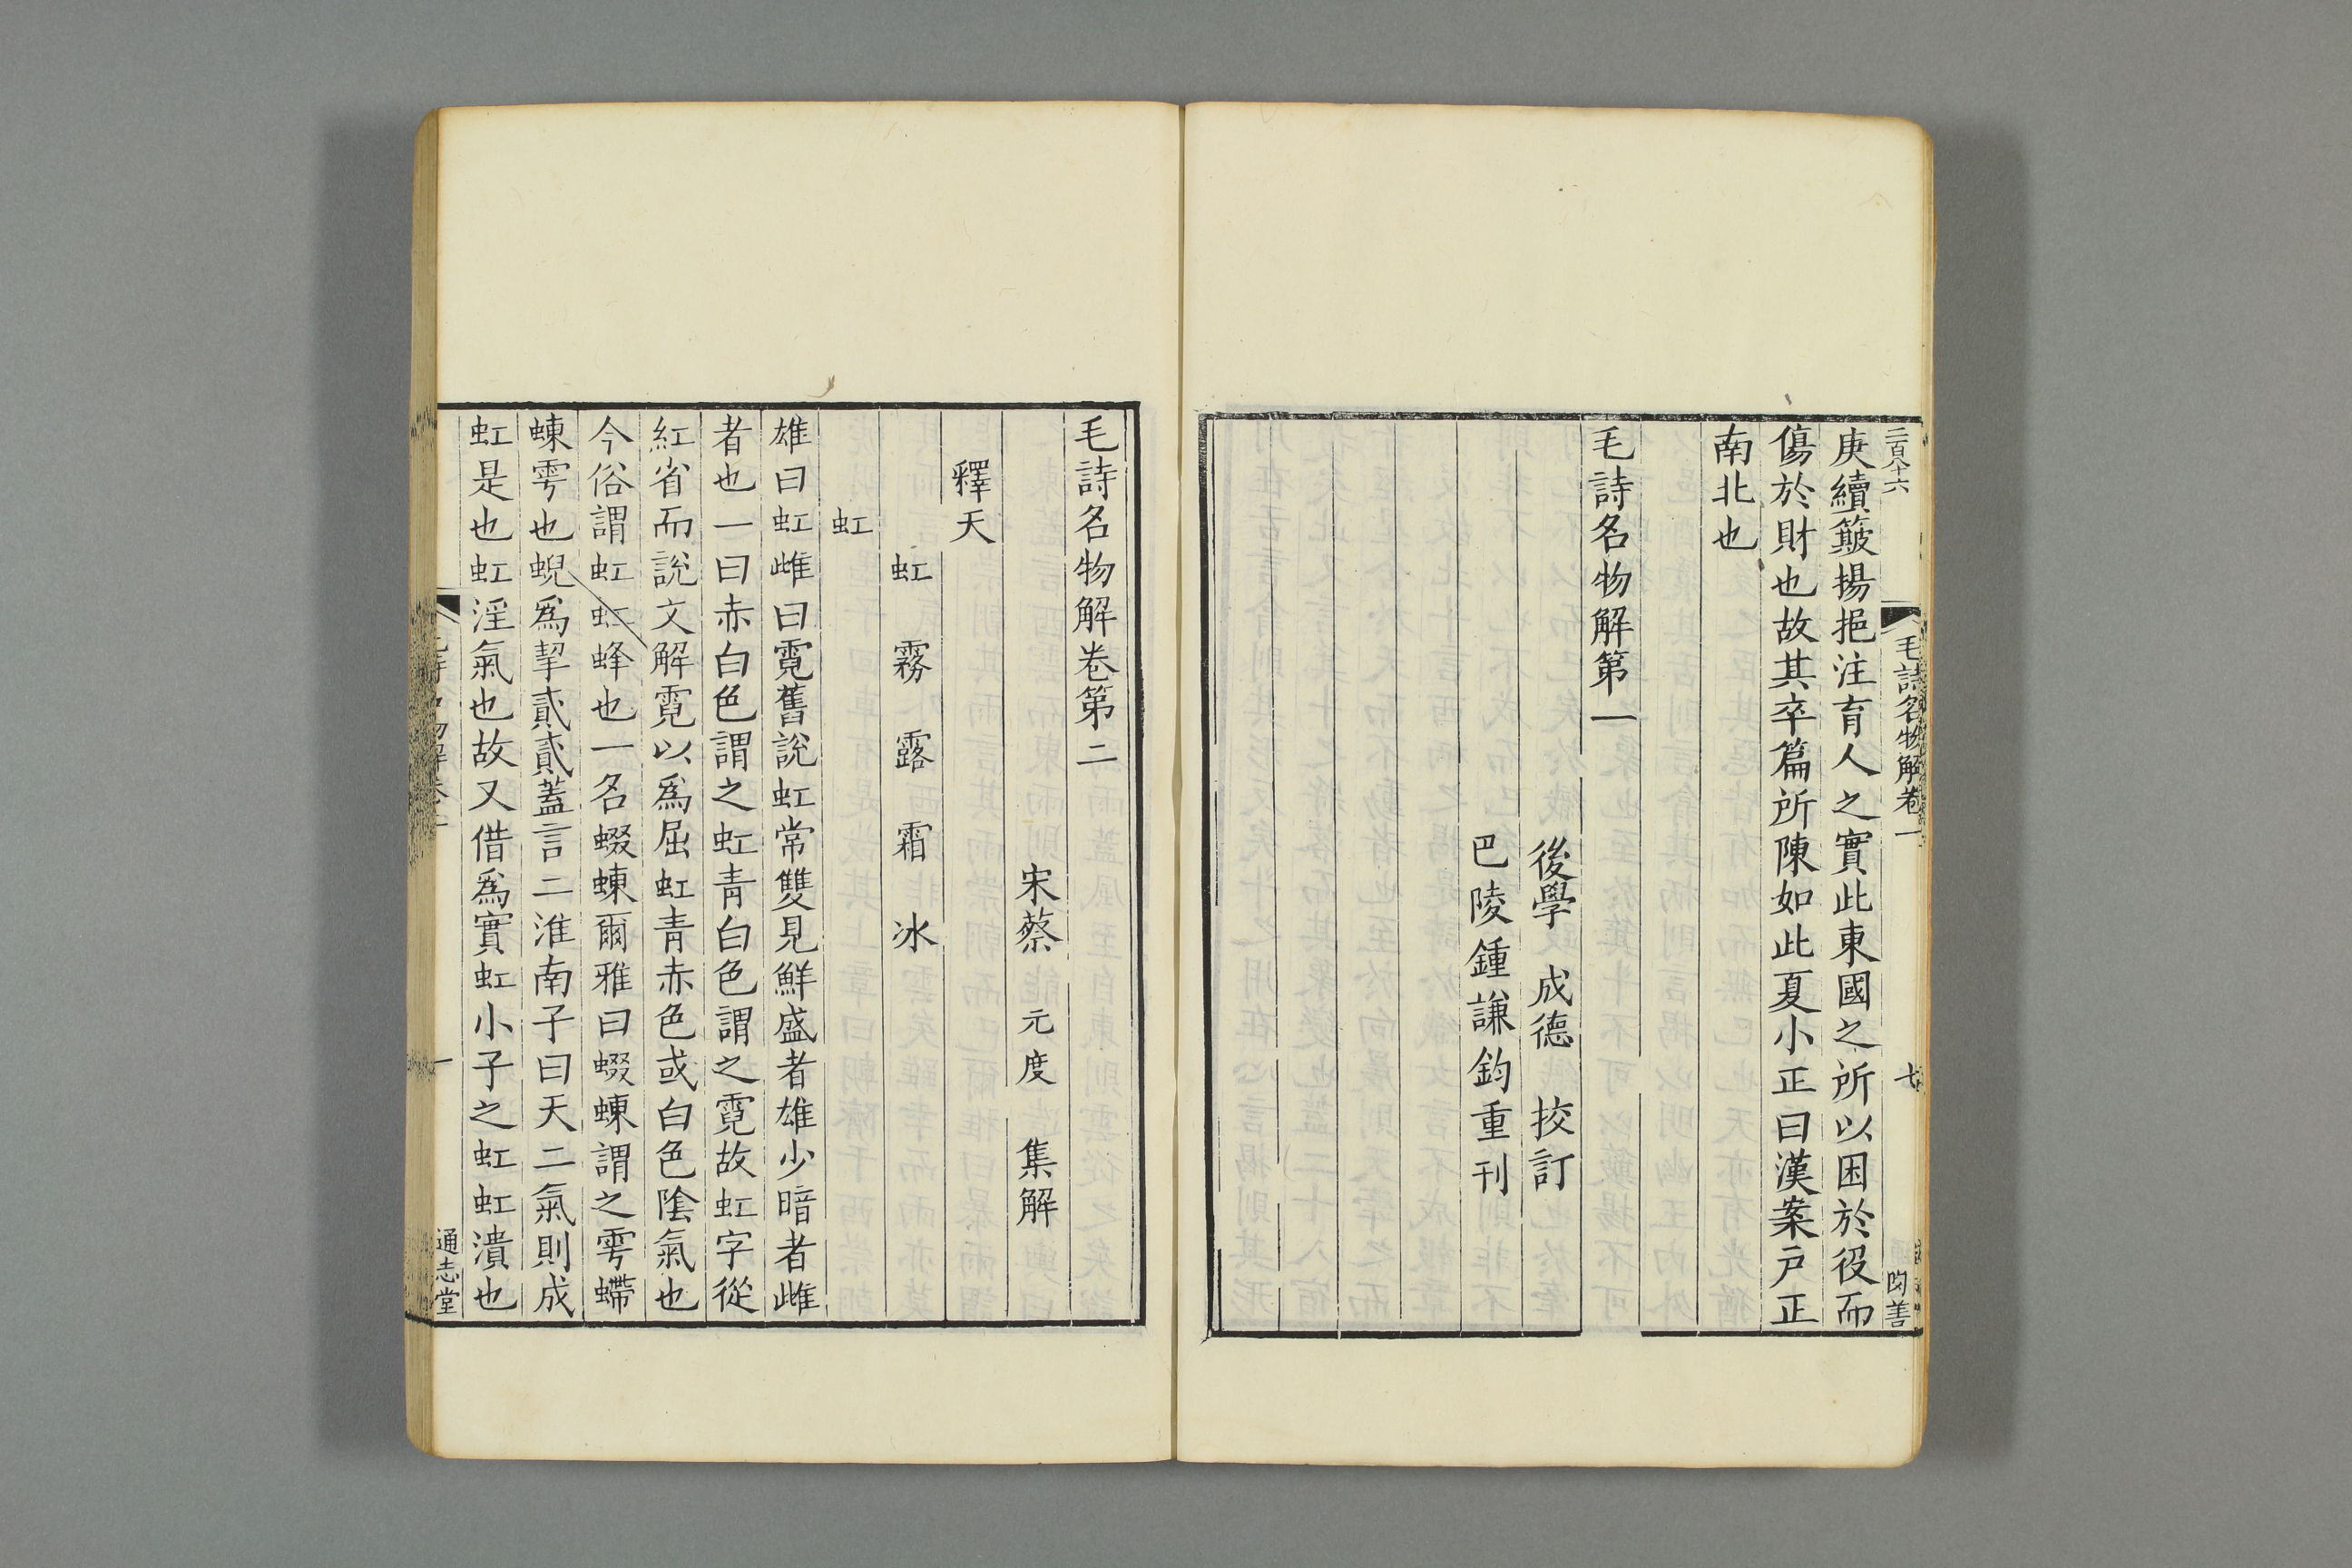 二百八十六
毛詩名物解卷一
七
庚續簸揚挹注育人之實此東國之所以困於役而
傷於財也故其卒篇所陳如此夏小正曰漢案戶正
南北也
毛詩名物解第一
後學 成德 挍訂
巴陵鍾謙鈞重刊
毛詩名物解卷第二
宋蔡元度 集解
釋天
虹 霧 露 霜 冰
虹
雄曰虹雌曰霓舊說虹常雙見鮮盛者雄少暗者雌
者也一曰赤白色謂之虹青白色謂之霓故虹字從
紅省而說文解霓以爲屈虹青赤色或白色陰氣也
今俗謂虹虹蜂也一名蝃蝀爾雅曰蝃蝀謂之雩螮
蝀雩也蜺爲挈貳貳蓋言二淮南子曰天二氣則成
虹是也虹淫氣也故又借爲實虹小子之虹虹潰也
一
通志堂